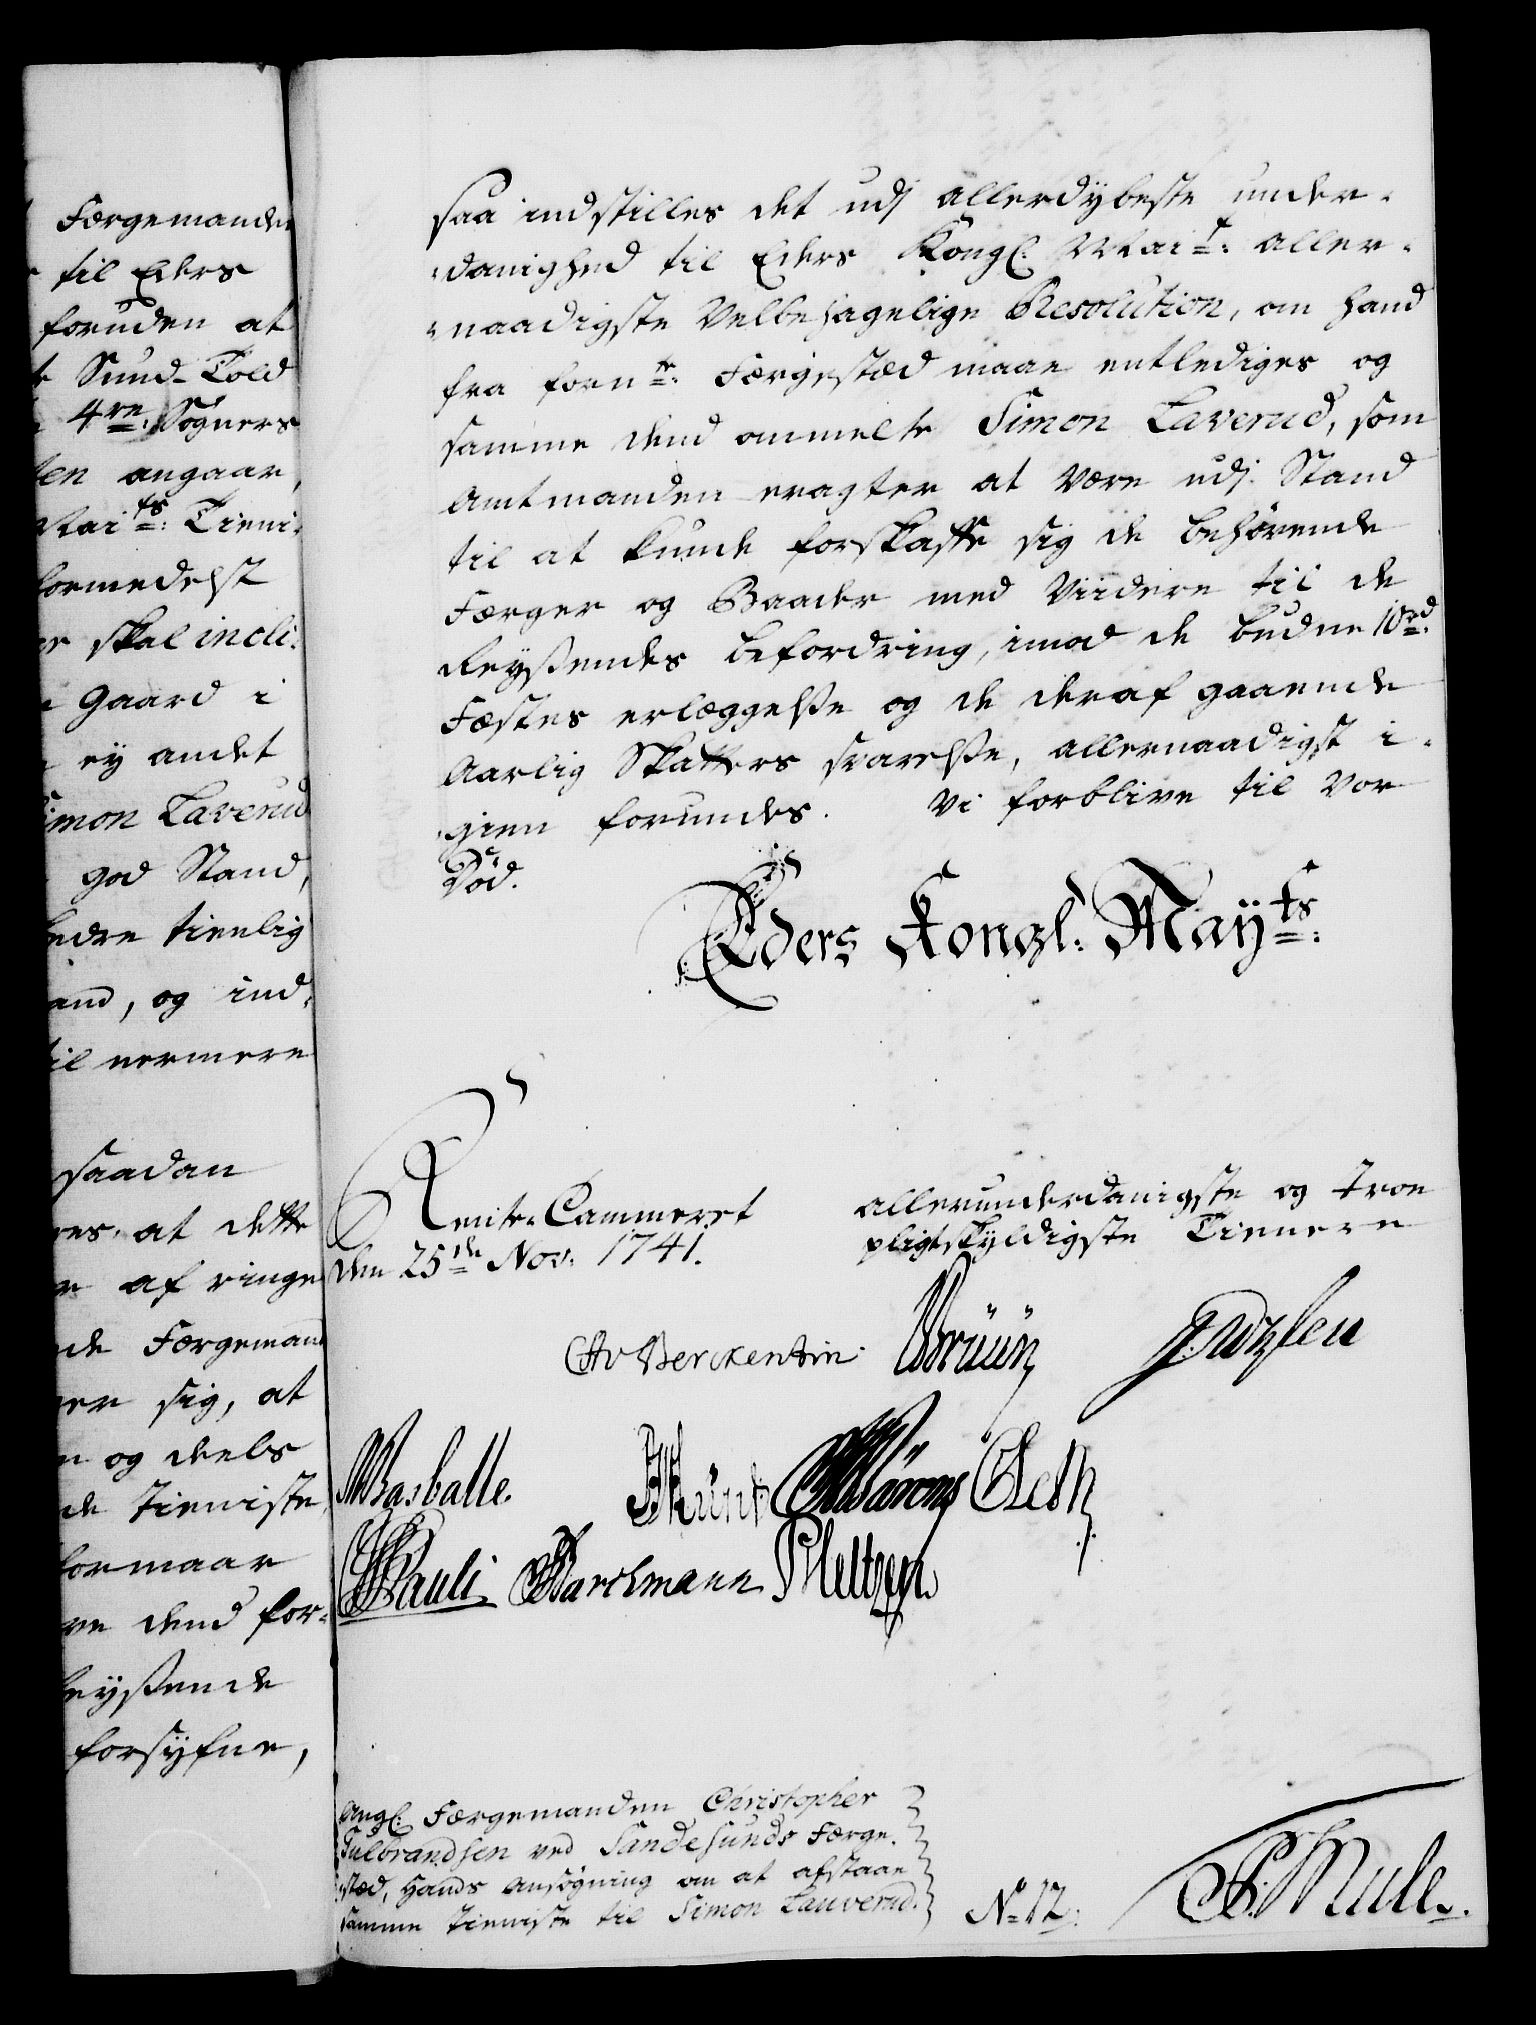 Færgemanden
til Eders
foruden at
Sund-Told
4re Søgners
angaar,
Mai:ts Tieni-
formedelst
skal incli:
Gaard i
ey andet
Simon Laverud
god Stand,
bedre tienlig
and, og ind-
til nermere
saadan
at dette
af ringe
de Færgemand
sig, at
og deels
de tieniste
formaar
dend for-
reyßende
forsyfne,
saa indstilles det udj allerdybeste under-
danighed til Eders Kongl: Mai:t aller-
naadigste Velbehagelige Resolution, om hand
fra forn:te Færgestæd maae entlediges og
samme dend ommelte Simon Laverud, som
Amtmanden eragter at være udj Stand
til at kunde forskaffe sig de behørende
Færger og Baader med Viidere til de
Reyßendes befordring, imod de budne 10 rd:
Fæstes erlæggelße og de deraf gaaende
Aarlig Skatters svarelße, allernaadigst i-
gien forundes. Vi forblive til vor
Død.
Eders Kongl: Mayts:
Rente-Cammeret
den 25de Nov: 1741.
allerunderdanigste og troe
pligtskyldigste Tienere
CAvBerckentin.
Bruün
Basballe.
Pauli Barchmann
Angl: Færgemanden Christopher
Gulbrandsen ved Sandesunds Færge-
stæd, Hands Ansøgning om at afstaae
samme tieniste til Simon Lauverud.
No 12.
P: Mule.